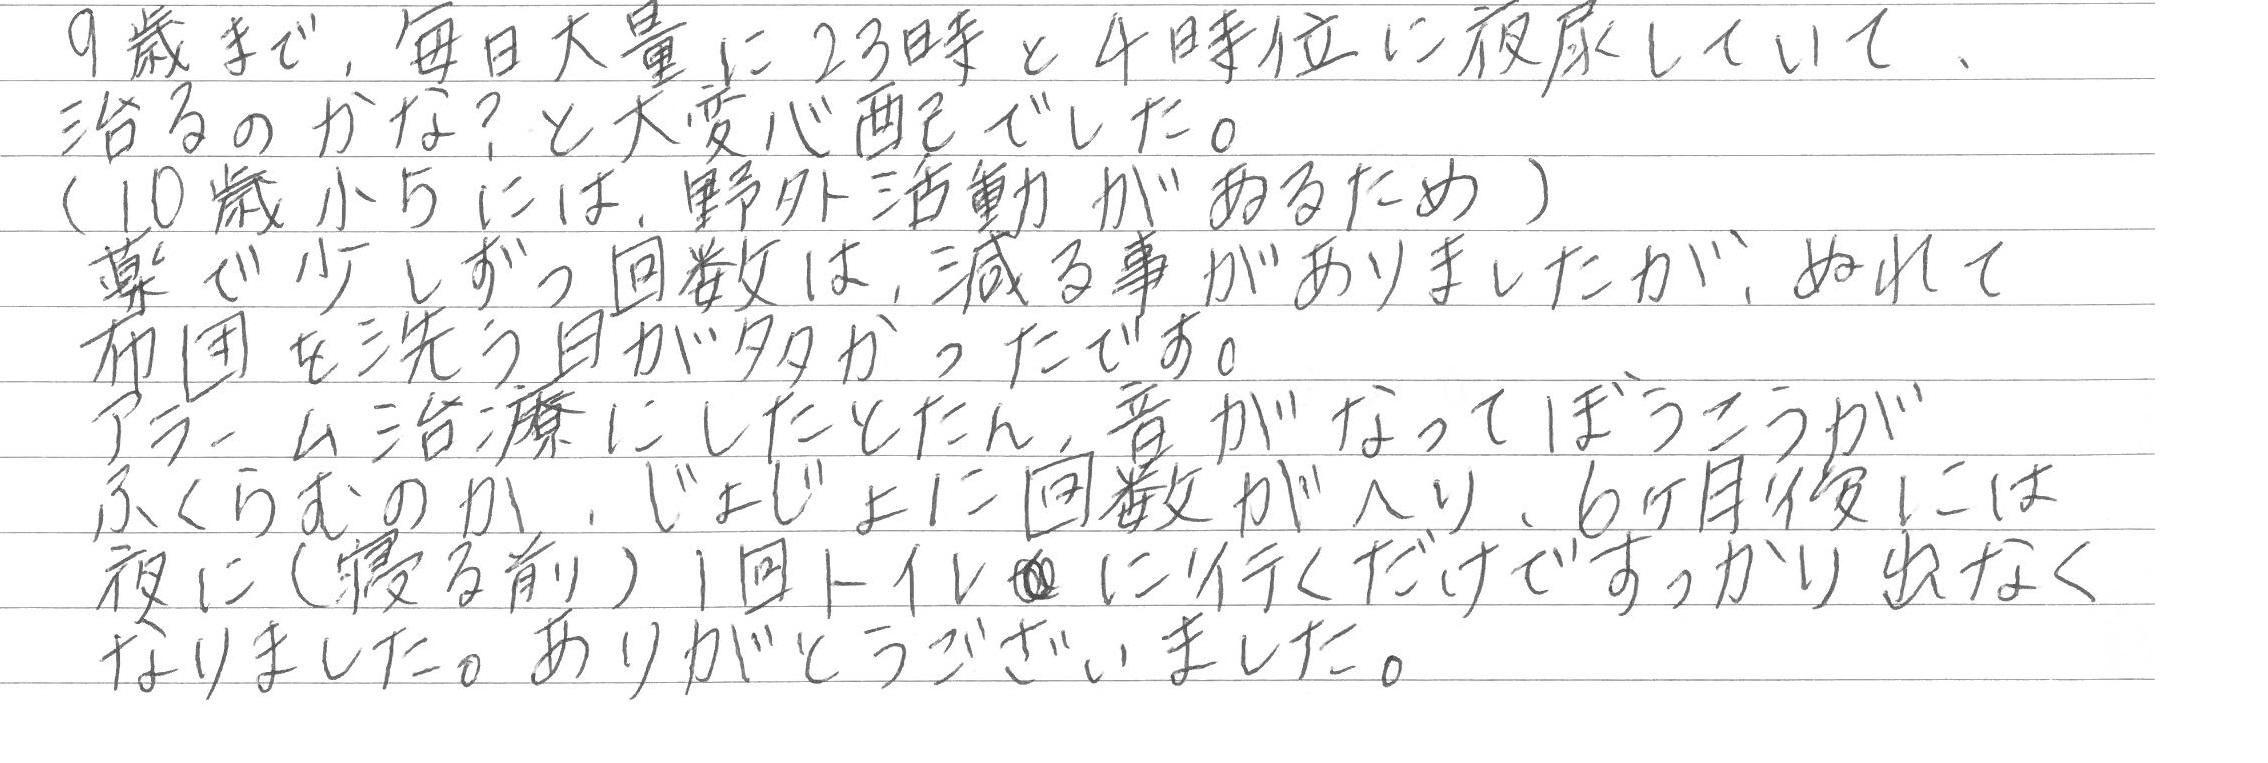 9歳まで、毎日大量に23時と4時位に夜尿していて、
治るのかな?と大変心配でした。
(10歳小5には、野外活動があるため)
薬で少しずつ回数は、減る事がありましたが、ぬれて
布団を洗う日が多かったです。
アラーム治療にしたとたん、音がなってぼうこうが
ふくらむのか、じょじょに回数がへり、6ヶ月後には
夜に(寝る前)1回トイレに行くだけですっかり出なく
なりました。ありがとうございました。